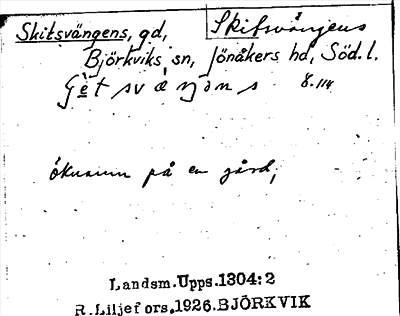 Skitsvängens, gd, Skitsvängens
Björkviks sn, Jönåkers hd, Söd. l.
8.114
ökunamn på en gård;
Landsm.Upps.1304:2
R.Liljefors.1926.BJÖRKVIK